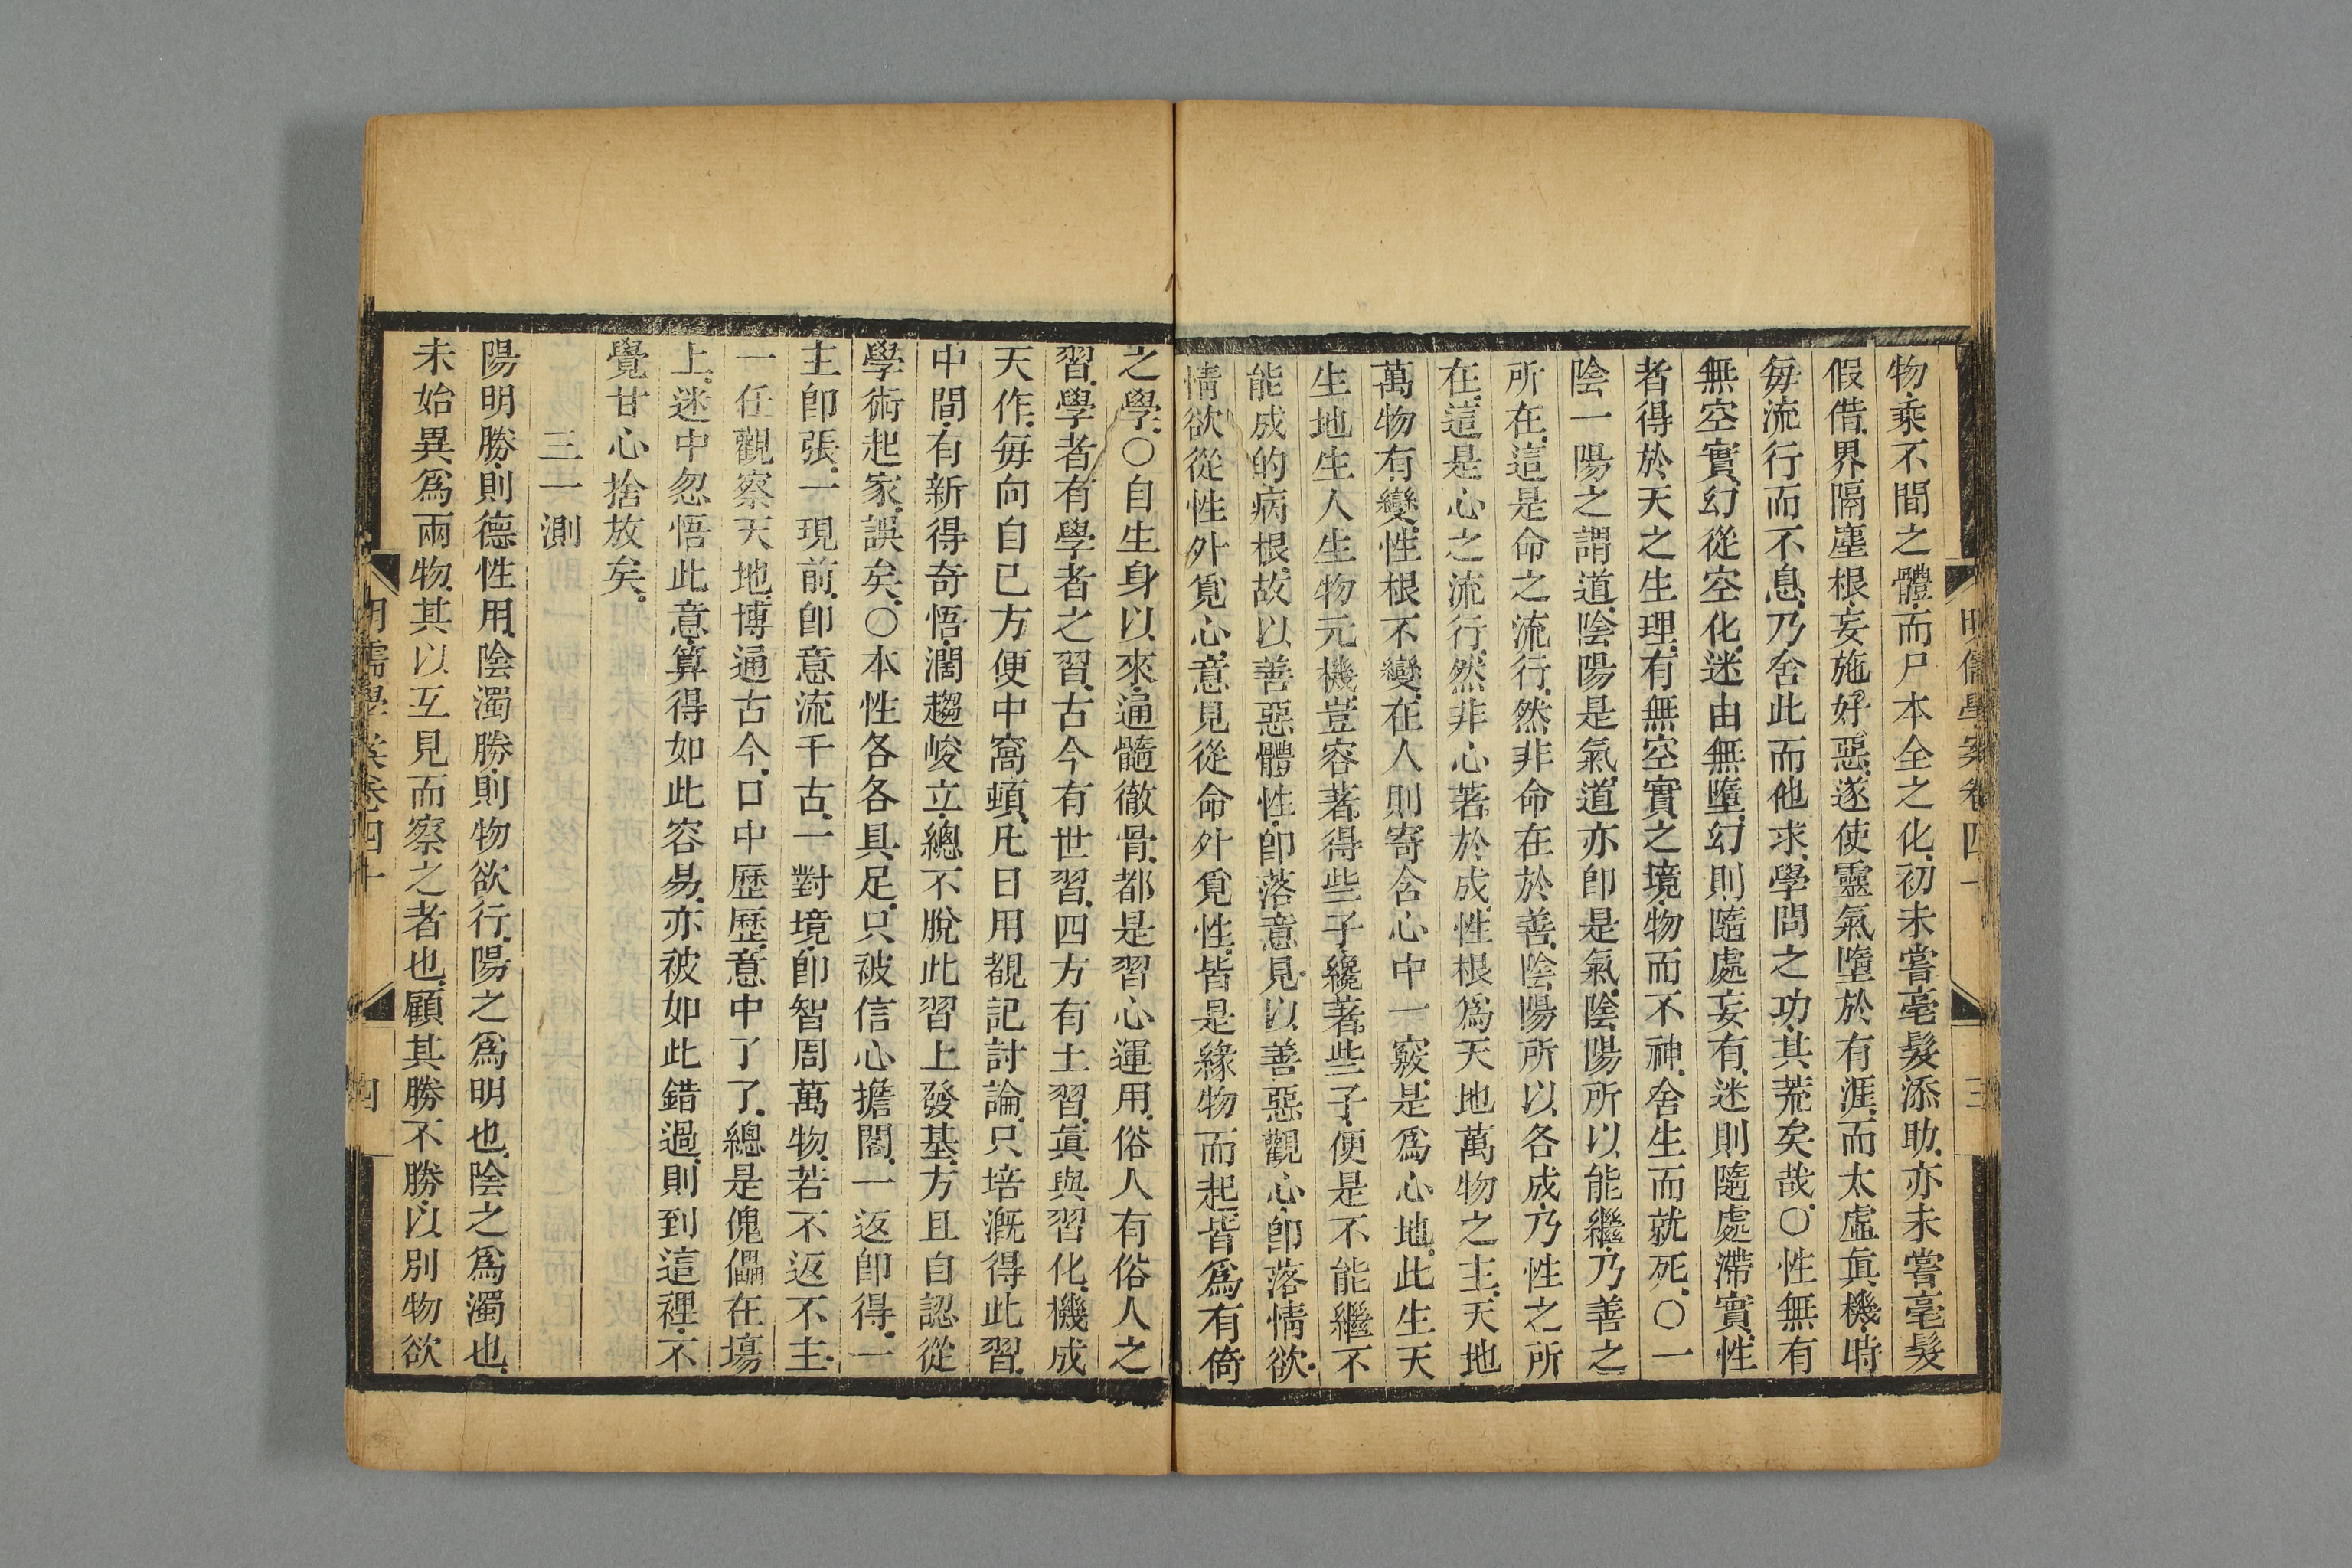 明儒學案卷四十
三
物乘不間之體而尸本全之化初未嘗毫髮添助亦未嘗毫髮
假借界隔塵根妄施好惡遂使靈氣墮於有涯而太虛眞機時
毎流行而不息乃舍此而他求學問之功其荒矣哉○性無有
無空實幻從空化迷由無墮幻則隨處妄有迷則隨處滯實性
者得於天之生理有無空實之境物而不神舍生而就死○一
陰一陽之謂道陰陽是氣道亦卽是氣陰陽所以能繼乃善之
所在這是命之流行然非命在於善陰陽所以各成乃性之所
在這是心之流行然非心著於成性根爲天地萬物之主天地
萬物有變性根不變在人則寄含心中一竅是爲心地此生天
生地生人生物元機豈容著得些子纔著些子便是不能繼不
能成的病根故以善惡體性卽落意見以善惡觀心卽落情欲
情欲從性外覓心意見從命外覓性皆是緣物而起皆爲有倚
之學○自生身以來通髓徹骨都是習心運用俗人有俗人之
習學者有學者之習古今有世習四方有土習眞與習化機成
天作每向自已方便中窩頓凡日用覩記討論只培漑得此習
中間有新得奇悟濶趨峻立總不脫此習上發基方且自認從
學術起家誤矣○本性各各具足只被信心擔閣一返卽得一
主卽張一現前卽意流千古一對境卽智周萬物若不返不主
一任觀察天地博通古今口中歷歷意中了了總是傀儡在塲
上迷中忽悟此意算得如此容易亦被如此錯過則到這裡不
覺甘心捨放矣
三一測
陽明勝則德性用陰濁勝則物欲行陽之爲明也陰之爲濁也
未始異爲兩物其以互見而察之者也顧其勝不勝以別物欲
明儒學案卷四十
四